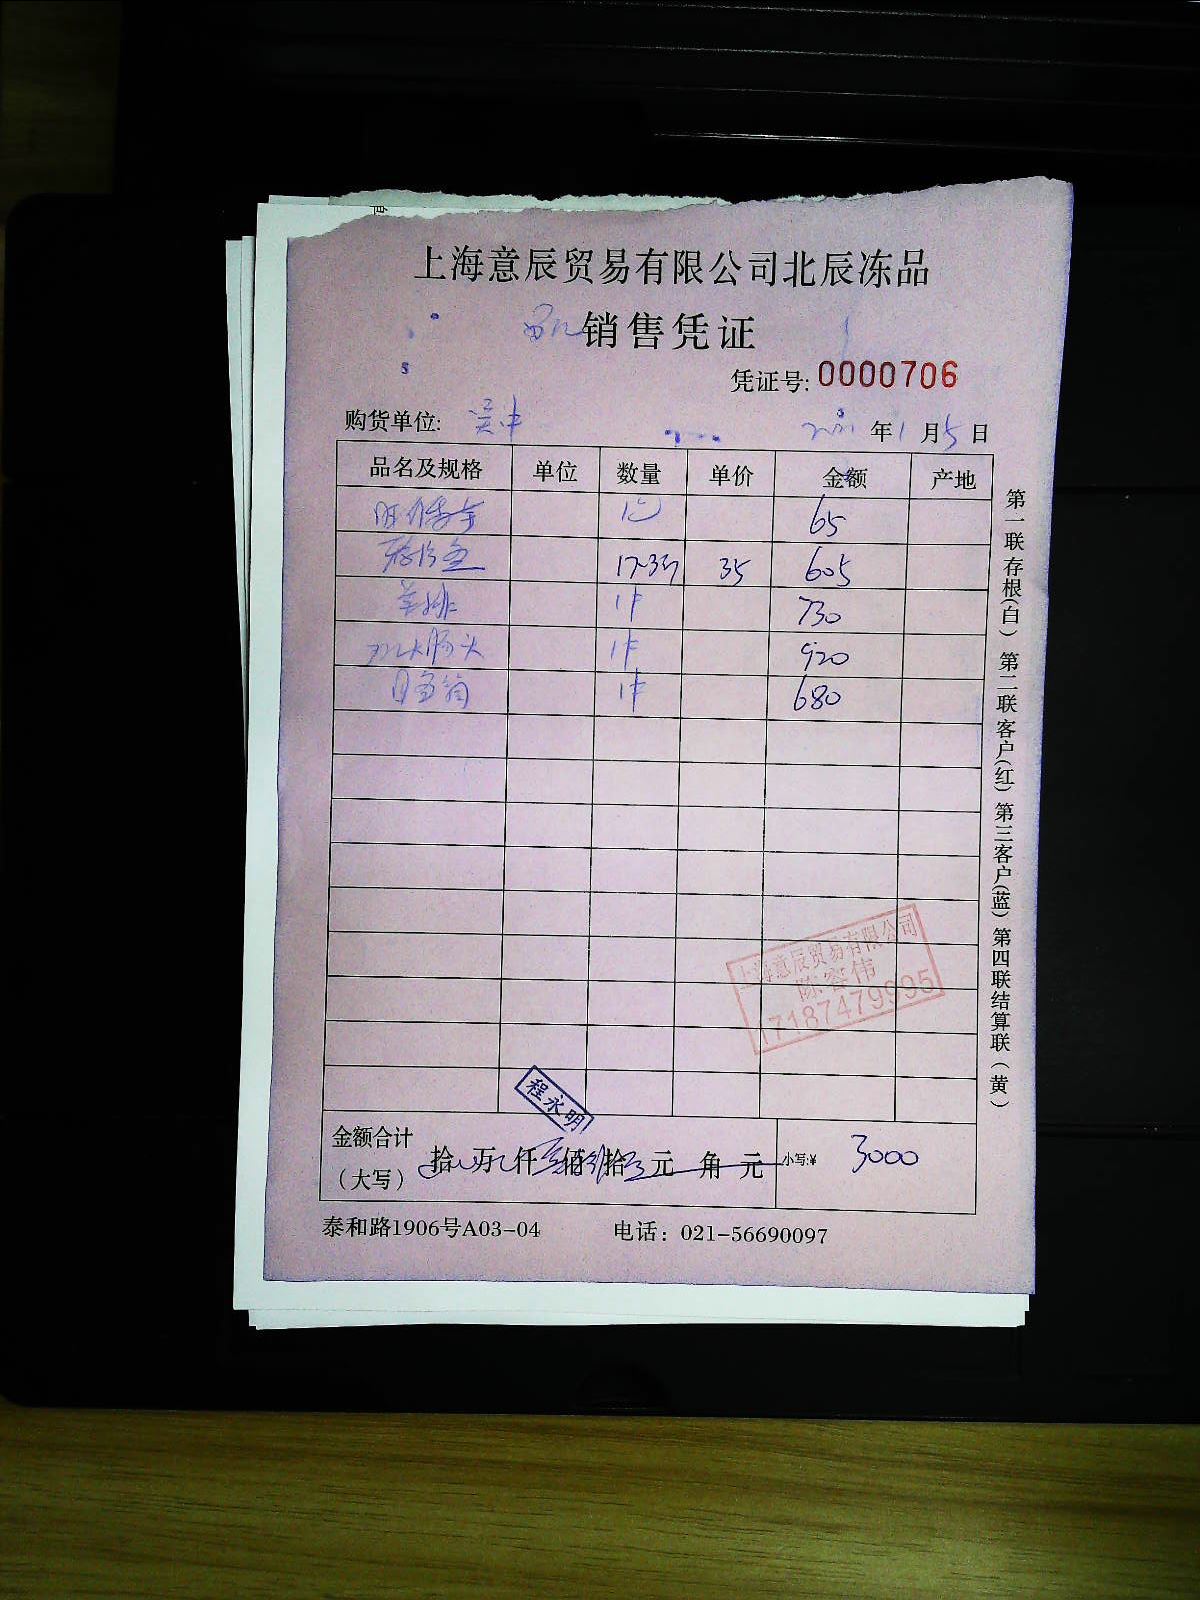 上海意辰贸易有限公司北辰冻品
销售凭证
凭证号: 0000706
购货单位: 吴中 2021年1月5日
品名及规格 单位 数量 单价 金额 产地
1包 65
17-35 35 605
羊排 1件 730
大肠头 1件 920
1件 680
上海意辰贸易有限公司
陈容伟
17187479995
程永明
金额合计
(大写) 拾 万 仟 佰 拾 元 角 元 小写:¥ 3000
泰和路1906号A03-04 电话: 021-56690097
第一联存根(白) 第二联客户(红) 第三客户(蓝) 第四联结算联(黄)